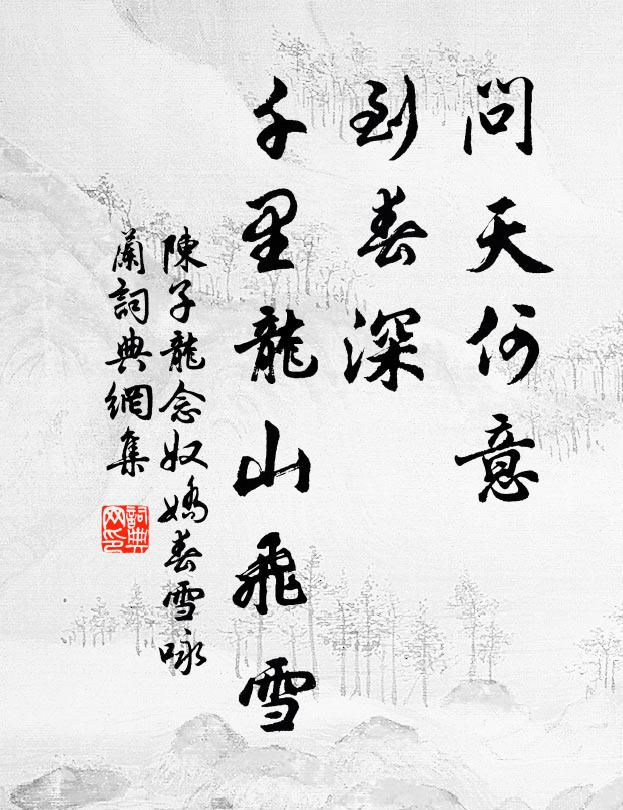 問天何意
到春深
千里龍山飛雪
陳子龍念奴嬌春雪咏
蘭詞典網集
詞典
网印